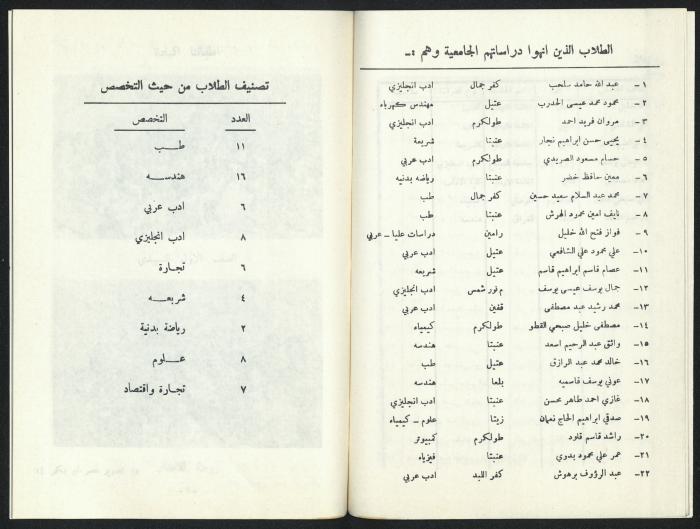 الطلاب الذين انهوا دراساتهم الجامعية وهم :ـ
١ـ عبد الله حامد سلحب كفر جمال ادب انجليزي
٢ـ محمود محمد عيسى الحدرب عتيل مهندس كهرباء
٣ـ مروان فريد احمد طولكرم ادب انجليزي
٤ـ يحيى حسن ابراهيم نجار عنبتا شريعة
٥ـ حسام مسعود الصريدي طولكرم ادب عربي
٦ـ معين حافظ خضر عنبتا رياضه بدنيه
٧ـ محمد عبد السلام سعيد حسين كفر جمال طب
٨ـ نايف امين محمود الهرش عنبتا طب
٩ـ فواز فتح الله خليل رامين دراسات عليا ـ عربي
١٠ـ علي محمود علي الشافعي عتيل ادب عربي
١١ـ عصام قاسم ابراهيم قاسم عتيل شريعه
١٢ـ جمال يوسف عيسى يوسف م نور شمس ادب انجليزي
١٣ـ محمد رشيد عبد مصطفى قفين ادب عربي
١٤ـ مصطفى خليل صبحي القطو طولكرم كيمياء
١٥ـ واثق عبد الرحيم اسعد عنبتا هندسه
١٦ـ خالد محمد عبد الرازق عتيل طب
١٧ـ عوني يوسف قاسميه بلعا هندسه
١٨ـ غازي احمد طاهر محسن عنبتا ادب انجليزي
١٩ـ صدقي ابراهيم الحاج نعمان زيتا علوم ـ كيمياء
٢٠ـ راشد قاسم قاود طولكرم كمبيوتر
٢١ـ عمر علي محمود بدوي عنبتا فيزياء
٢٢ـ عبد الرؤوف برهوش كفر اللبد ادب عربي
تصنيف الطلاب من حيث التخصص
العدد التخصص
١١ طب
١٦ هندسه
٦ ادب عربي
٨ ادب انجليزي
٦ تجارة
٤ شريعه
٢ رياضة بدنية
٨ علوم
٧ تجارة واقتصاد